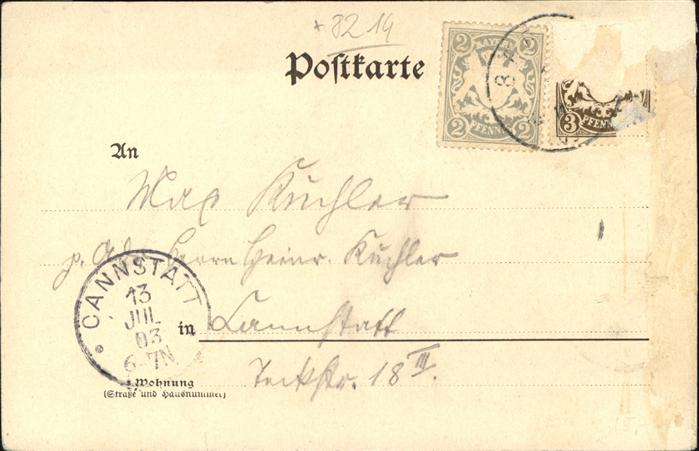 *8214
Postkarte
2 BAYERN 2
2 PFENNIG 2
3 PFENN
8
An
Max Küchler
p. Adr. Herrn Heinr. Küchler
CANNSTATT
13
JUL
03
6-7N
in Cannstatt
Wohnung
(Straße und Hausnummer)
Teckstr. 18 III.